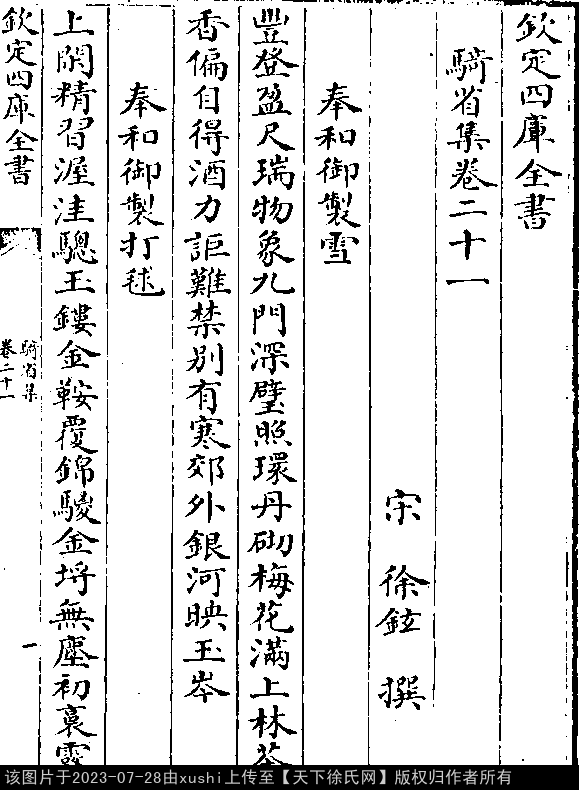 欽定四庫全書
騎省集卷二十一
宋 徐鉉 撰
奉和御製雪
豐登盈尺瑞物象九門深璧照環丹砌梅花滿上林茶
香偏自得酒力詎難禁别有寒郊外銀河映玉岑
奉和御製打毬
上閑精習渥洼驄玉鏤金鞍覆錦騣金埒無塵初裛露
欽定四庫全書
騎省集
卷二十一
一
该图片于2023-07-28由xushi上传至【天下徐氏网】版权归作者所有